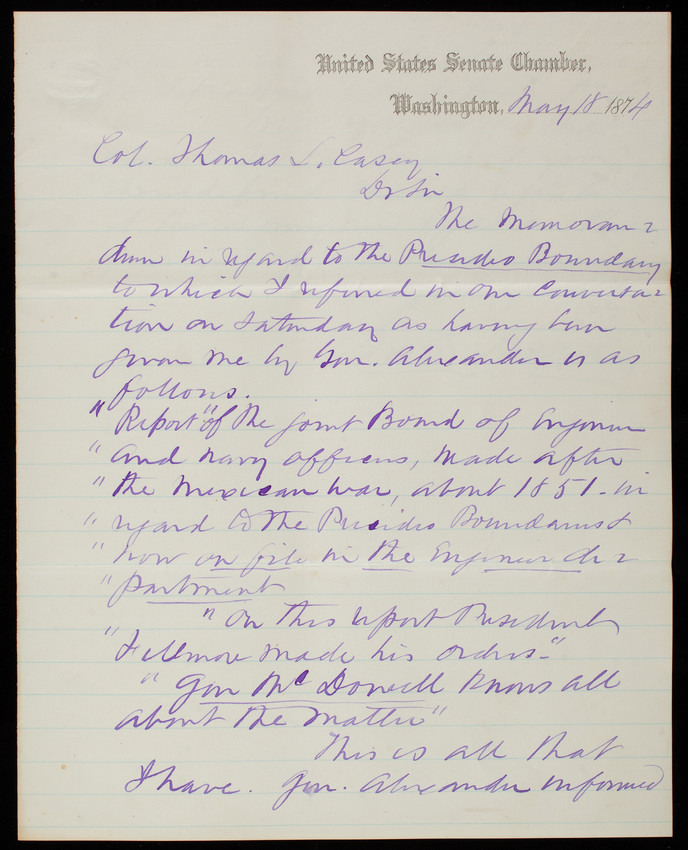 United States Senate Chamber,
Washington, May 18 1874
Col. Thomas L. Casey
Dr Sir
The Memoran=
dum in regard to the Presidio Boundary
to which I referred in our Conversa=
tion on Saturday as having been
given me by Gen. Alexander is as
follows.
"Report" of the joint Board of Engineer
"and navy officers, made after
"the Mexican war, about 1851 - in
"regard to the Presidio Boundaries &
"now on file in the Engineer de=
"partment
"On this report President
"Fillmore made his orders-"
"Gen McDowell knows all
about the matter"
This is all that
I have. Gen. Alexander informed